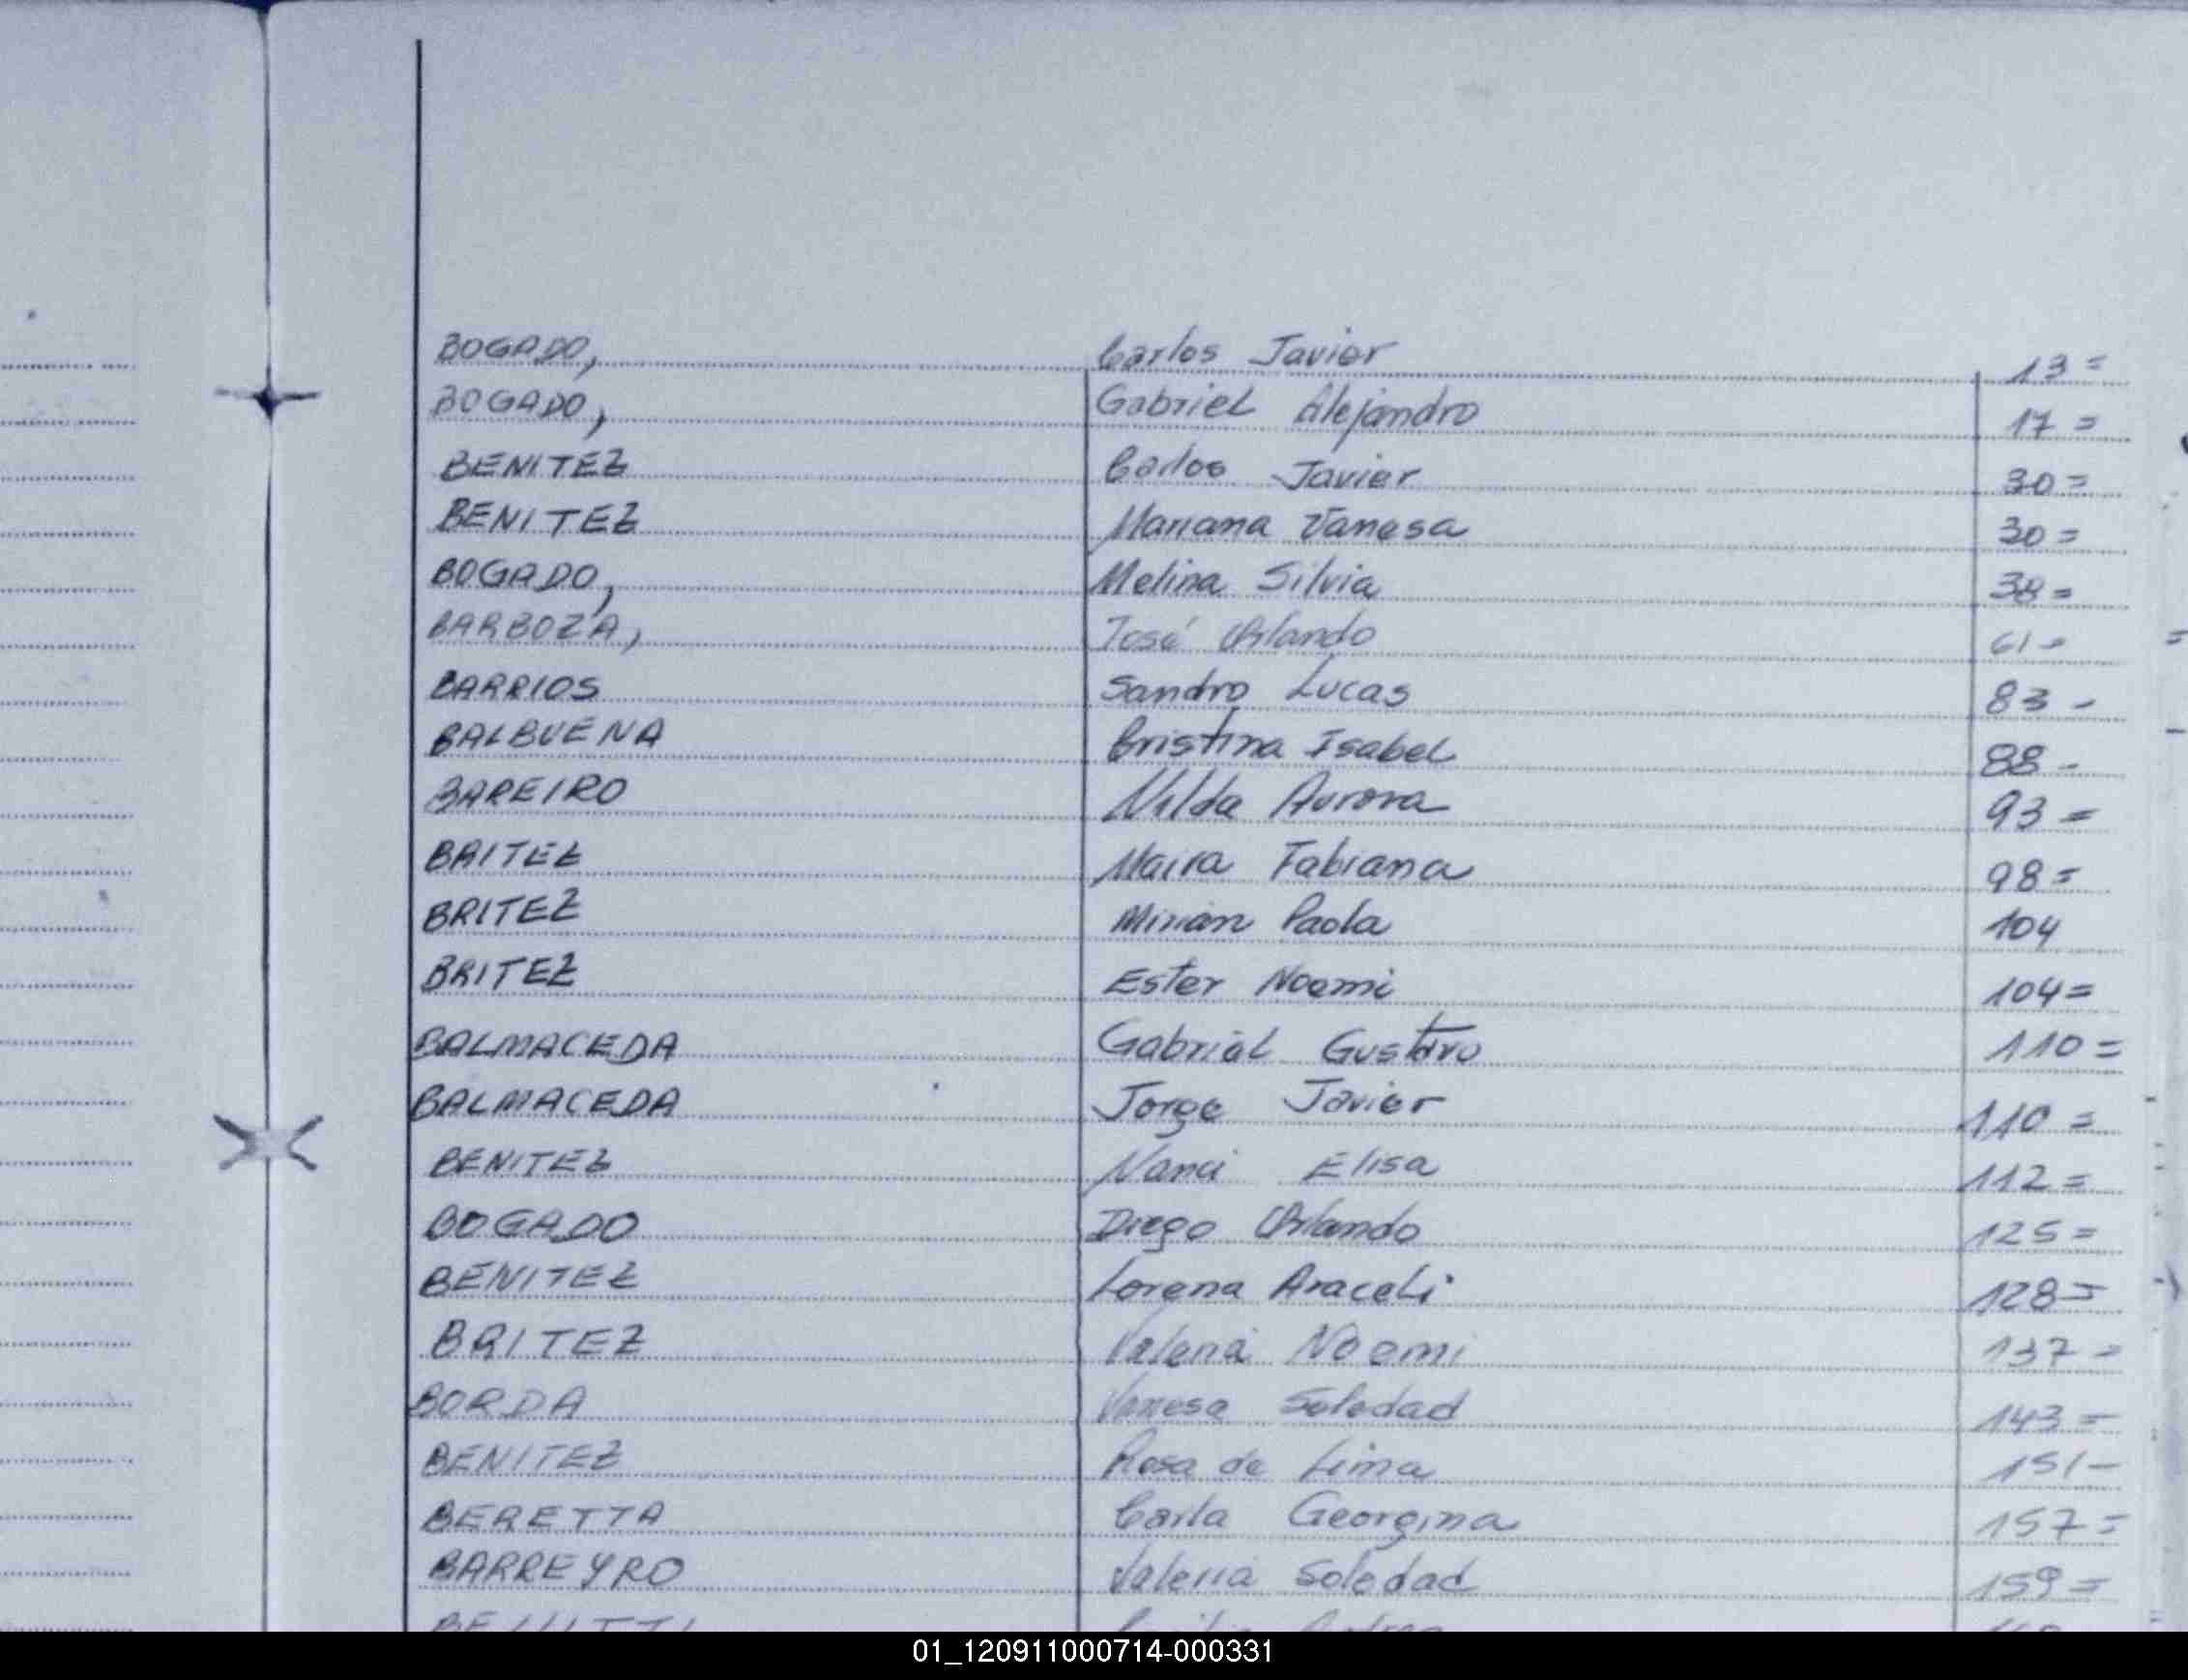 BOGADO, Carlos Javier 13=
BOGADO, Gabriel Alejandro 17=
BENITEZ Carlos Javier 30=
BENITEZ Mariana Vanesa 30=
BOGADO, Melina Silvia 38=
BARBOZA, José Orlando 61=
BARRIOS Sandro Lucas 83-
BALBUENA Cristina Isabel 88-
BAREIRO Nilda Aurora 93=
BRITEZ Maira Fabiana 98=
BRITEZ Mirian Paola 104
BRITEZ Ester Noemi 104=
BALMACEDA Gabriel Gustavo 110=
BALMACEDA Jorge Javier 110=
BENITEZ Nanci Elisa 112=
BOGADO Diego Orlando 125=
BENITEZ Lorena Araceli 128=
BRITEZ Valeria Noemi 137=
BORDA Vanesa Soledad 143=
BENITEZ Rosa de Lima 151-
BERETTA Carla Georgina 157=
BARREYRO Valeria Soledad 159=
01_120911000714-000331